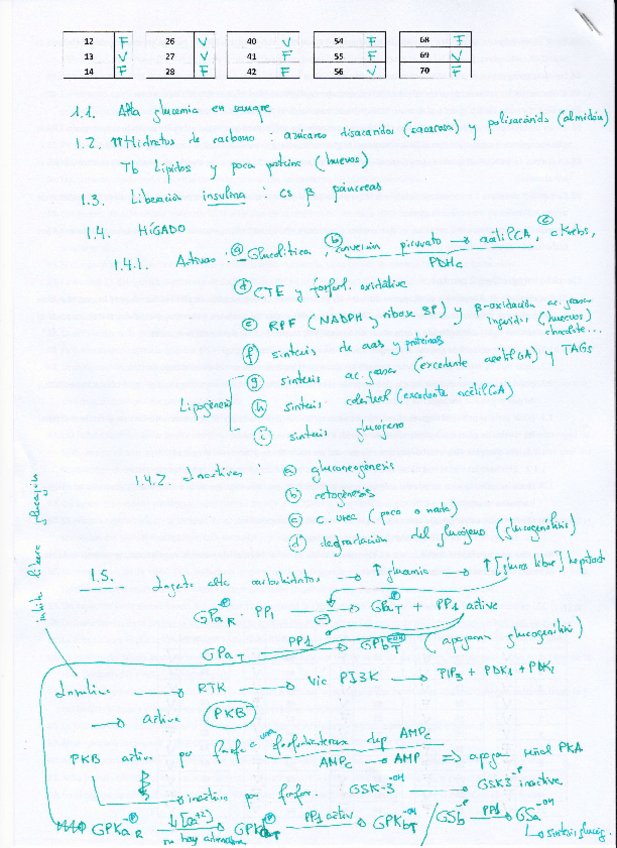 12 F 26 V 40 V 54 F 68 F
13 V 27 V 41 F 55 F 69 V
14 F 28 F 42 F 56 V 70 F
1.1. Alta glucemia en sangre
1.2. ↑↑Hidratos de carbono : azúcares disacáridos (sacarosa) y polisacárido (almidón)
Tb Lípidos y poca proteína (huevos)
1.3. Liberación insulina : cs β páncreas
1.4. HÍGADO
1.4.1. Activas : ⓐ Glucolítica, ⓑ conversión piruvato → acetilCoA, ⓒ cKrebs,
PDHc
ⓓ CTE y fosforil. oxidativa
ⓔ RPF (NADPH y ribosa 5P) y β-oxidación ac. grasos
(huevos)
chocolate...
ⓕ síntesis de aas y proteínas
ⓖ síntesis ac. grasos (excedente acetilCoA) y TAGs
Lipogénesis
ⓗ síntesis colesterol (excedente acetilCoA)
ⓘ síntesis glucógeno
1.4.2. Inactivas : ⓐ gluconeogénesis
ⓑ cetogénesis
ⓒ c. urea (poca o nada)
ⓓ degradación del glucógeno (glucogenólisis)
1.5. Ingesta alta carbohidratos → ↑ glucemia → ↑ [glucosa libre] hepatocito
GPaR-Ⓟ · PP1 → GPaT-Ⓟ + PP1 activa
GPaT PP1 → GPbT-OH (apagamos glucogenólisis)
inhibe libere glucagón
Insulina → RTK → Vía PI3K → PIP3 + PDK1 + PDK1
→ activa PKB
PKB activa por fosfo a una fosfodiesterasa dep AMPc
AMPc → AMP ⇒ apaga señal PKA
→ inactiva por fosfor. GSK-3-OH → GSK3-P inactiva
GPKaR-Ⓟ ↓[Ca+2] → PP1 activ → GPKbT-OH / GSb-P PP1 → GSa-OH
no hay adrenalina
↳ síntesis glucóg.